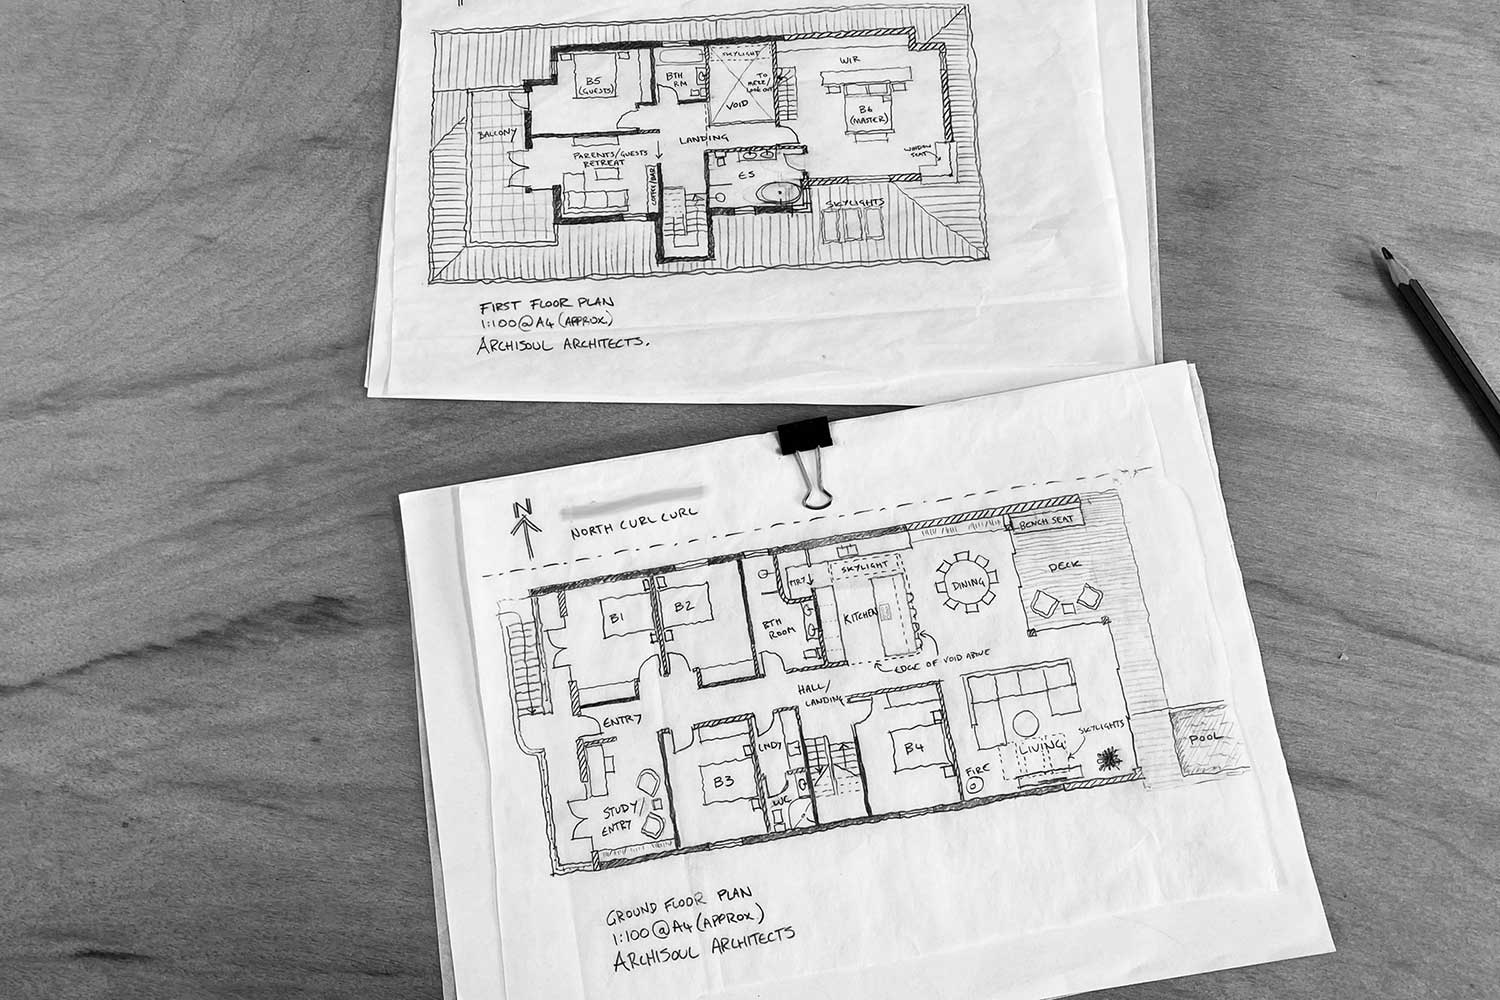 SKYLIGHT
WIR
B5
(GUESTS)
BTH
RM
TO
MEZZ/
LOOK OUT
VOID
B6
(MASTER)
BALCONY
LANDING
PARENTS/GUESTS
RETREAT
WINDOW
SEAT
COFFEE/BAR
ES
SKYLIGHTS
FIRST FLOOR PLAN
1:100@A4 (APPROX.)
ARCHISOUL ARCHITECTS.
N
NORTH CURL CURL
BENCH SEAT
SKYLIGHT
DECK
DINING
B1
B2
KITCHEN
BTH
ROOM
EDGE OF VOID ABOVE
HALL/
LANDING
ENTRY
SKYLIGHTS
POOL
LNDY
B4
LIVING
B3
FIRE
WC
STUDY/
ENTRY
GROUND FLOOR PLAN
1:100@A4 (APPROX.)
ARCHISOUL ARCHITECTS